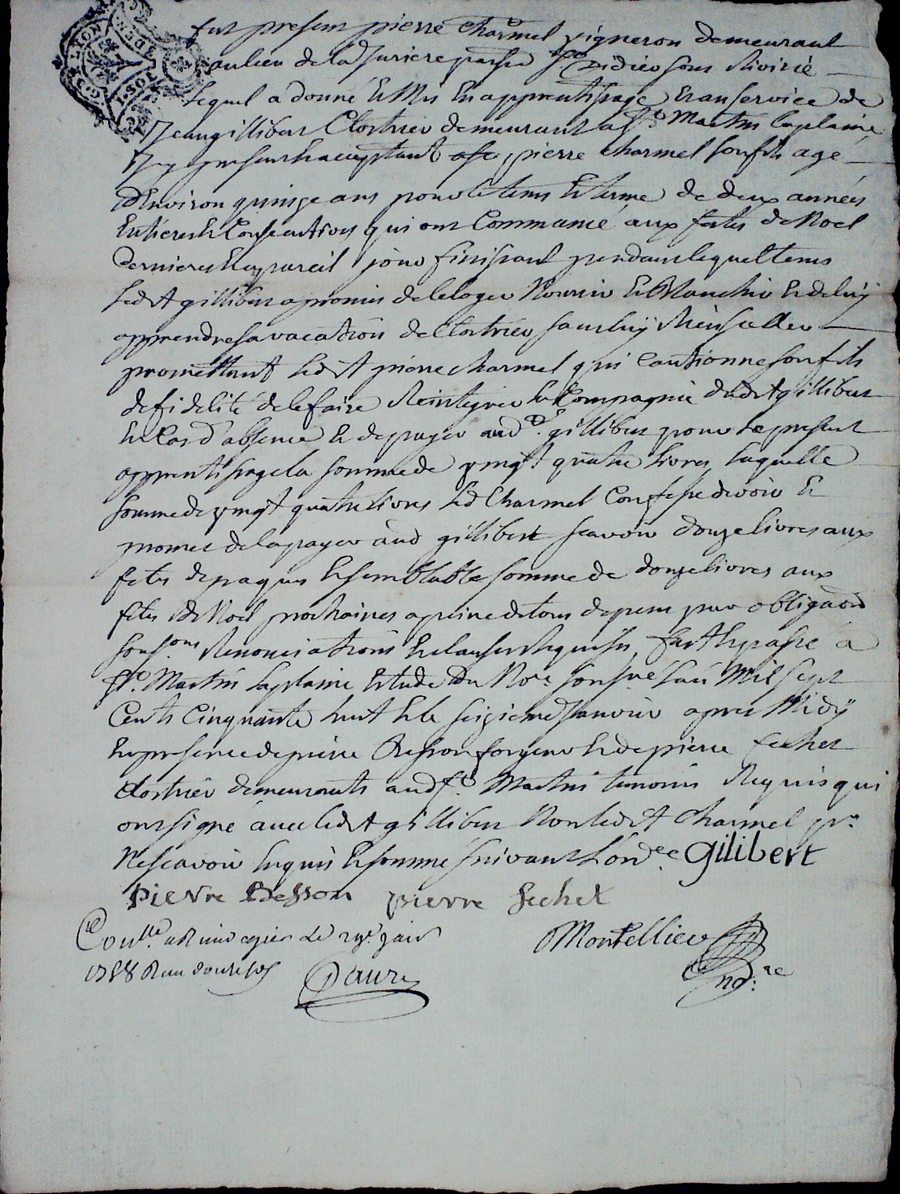 fut present pierre charmel vigneron demeurant
au lieu de la paroisse st didier sous Riverie
lequel a donne et Mis En apprentissage Et au service de
Jean gillibert Cloutrier demeurant a st Martin laplaine
Icy present et acceptant pierre charmel son fils agé
d'Environ quinze ans pour le tems Et terme de deux années
Entieres Et Consecutives qui ont Commancé aux fetes de Noel
dernieres Et a pareil jour finissant pendant lequel tems
Ledit gillibert a promis de le loger Nourrir Et Blanchir Et de luy
apprendre sa vacation de Cloutrier sans luy Rien Celler
promettant Ledit pierre charmel qui Cautionne son fils
de fidelité de le faire Reintegrer la Compagnie dudit gillibert
En Cas d'absence Et de payer aud. gillibert pour Le present
apprentissage la somme de vingt quatre livres laquelle
somme de vingt quatre livres Led Charmel Confesse devoir Et
promet de la payer aud gillibert scavoir douze livres aux
fetes de paques Et semblable somme de douze livres aux
fetes de Noel prochaines a peine de tous depens par obligaon
Renonciations Et clauses Requises, fait Et passé a
st. Martin laplaine Etude du Nore soussne L'an Mil sept
Cents Cinquante huit Et le seizieme Janvier apres Midy
En presence de pierre Besson forgeur Et de pierre sechet
Cloutrier demeurants aud st. Martin temoins Requis qui
ont signé avec ledit gillibert Non ledit Charmel pr.
Ne scavoir Enquis Et sommé suivant L'ordce Gilibert
Pierre Besson pierre sechet
Conlle a Rive de gier Le janv Montellier
1758 R un douze sols nore
Daure